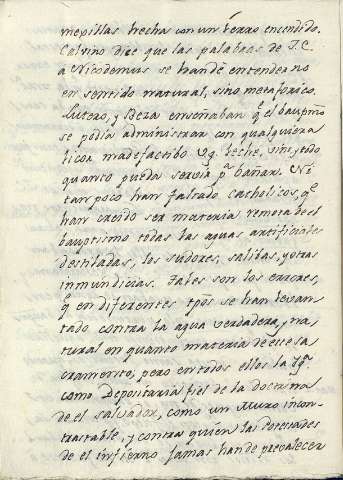 mexillas hecha con un hierro encendido.
Calvino dice que las palabras de J.C.
a Nicodemus se han de entender no
en sentido natural, sino metaforico.
Lutero, y Beza enseñaban q.e el baup.mo
se podia administrar con qualquiera
licor madefactibo Vg. leche, vino, y todo
quanto pueda servir p.a bañar. Ni
tan poco han faltado catholicos, q.e
han creido ser materia remota de el
bauptismo todas las aguas artificiales
destiladas, los sudores, salibas, y otras
inmundicias. Tales son los errores,
q.e en diferentes tpõs se han levan
tado contra la agua verdadera, y na
tural en quanto materia de este sa
cramento, pero en todos ellos la Yg.a
como Depositaria fiel de la doctrina
de el salvador, como un Muro incon-
trastable, y contra quien las Potestades
de el infierno jamas han de prevalecer